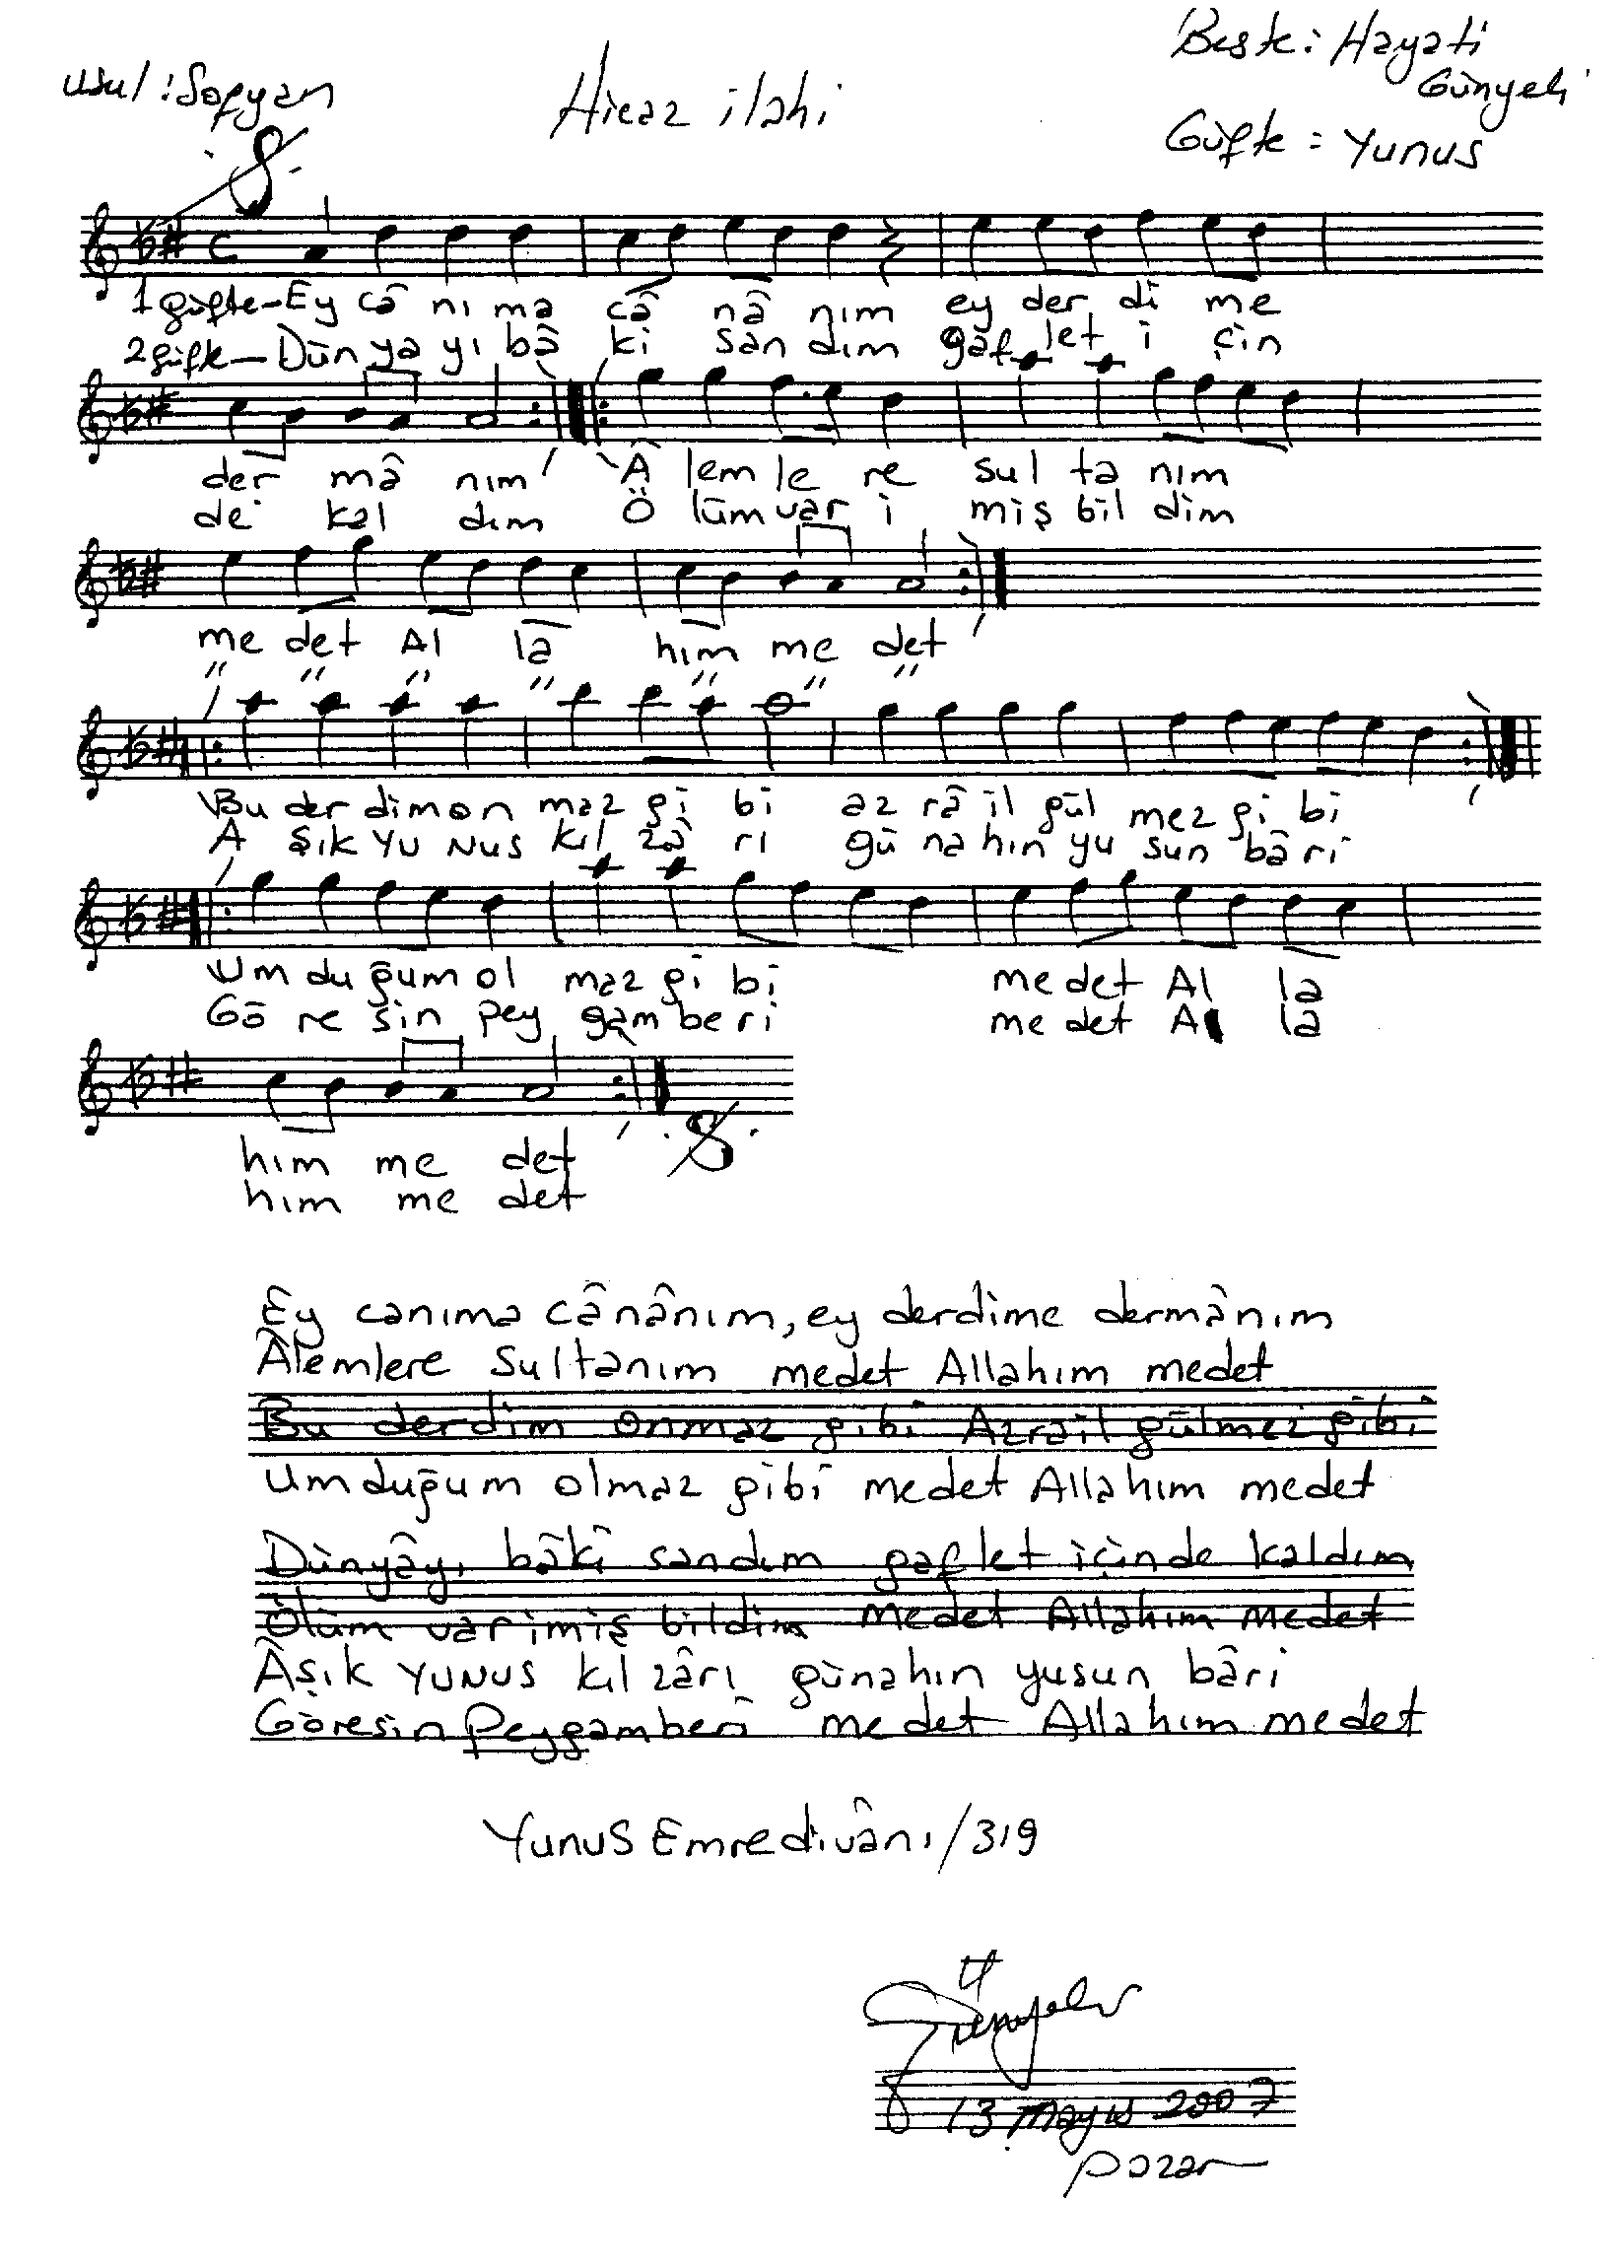 Usul : Sofyan
Hicaz ilahi
Beste : Hayati
Günyeli
Güfte : Yunus
1 güfte - Ey câ nı ma câ nâ nım ey der di me
2 güfte - Dün ya yı bâ ki san dım gaf let i çin
der mâ nım Â lem le re sul ta nım
de kal dım Ö lüm var i miş bil dim
me det Al la hım me det
" " " " " " "
Bu der dim on maz gi bi az râ il gül mez gi bi
A şık Yu nus kıl zâ rı gü na hın yu sun bâ ri
Um du ğum ol maz gi bi me det Al la
Gö re sin pey gam be ri me det Al la
hım me det
hım me det
Ey canıma cânânım, ey derdime dermânım
Âlemlere Sultanım medet Allahım medet
Bu derdim onmaz gibi Azrail gülmez gibi
Umduğum olmaz gibi medet Allahım medet
Dünyâyı bâkî sandım gaflet içinde kaldım
Ölüm var imiş bildim medet Allahım medet
Âşık Yunus kıl zârı günahın yusun bâri
Göresin Peygamberi medet Allahım medet
Yunus Emre divânı / 319
13 Mayıs 2007
Pazar